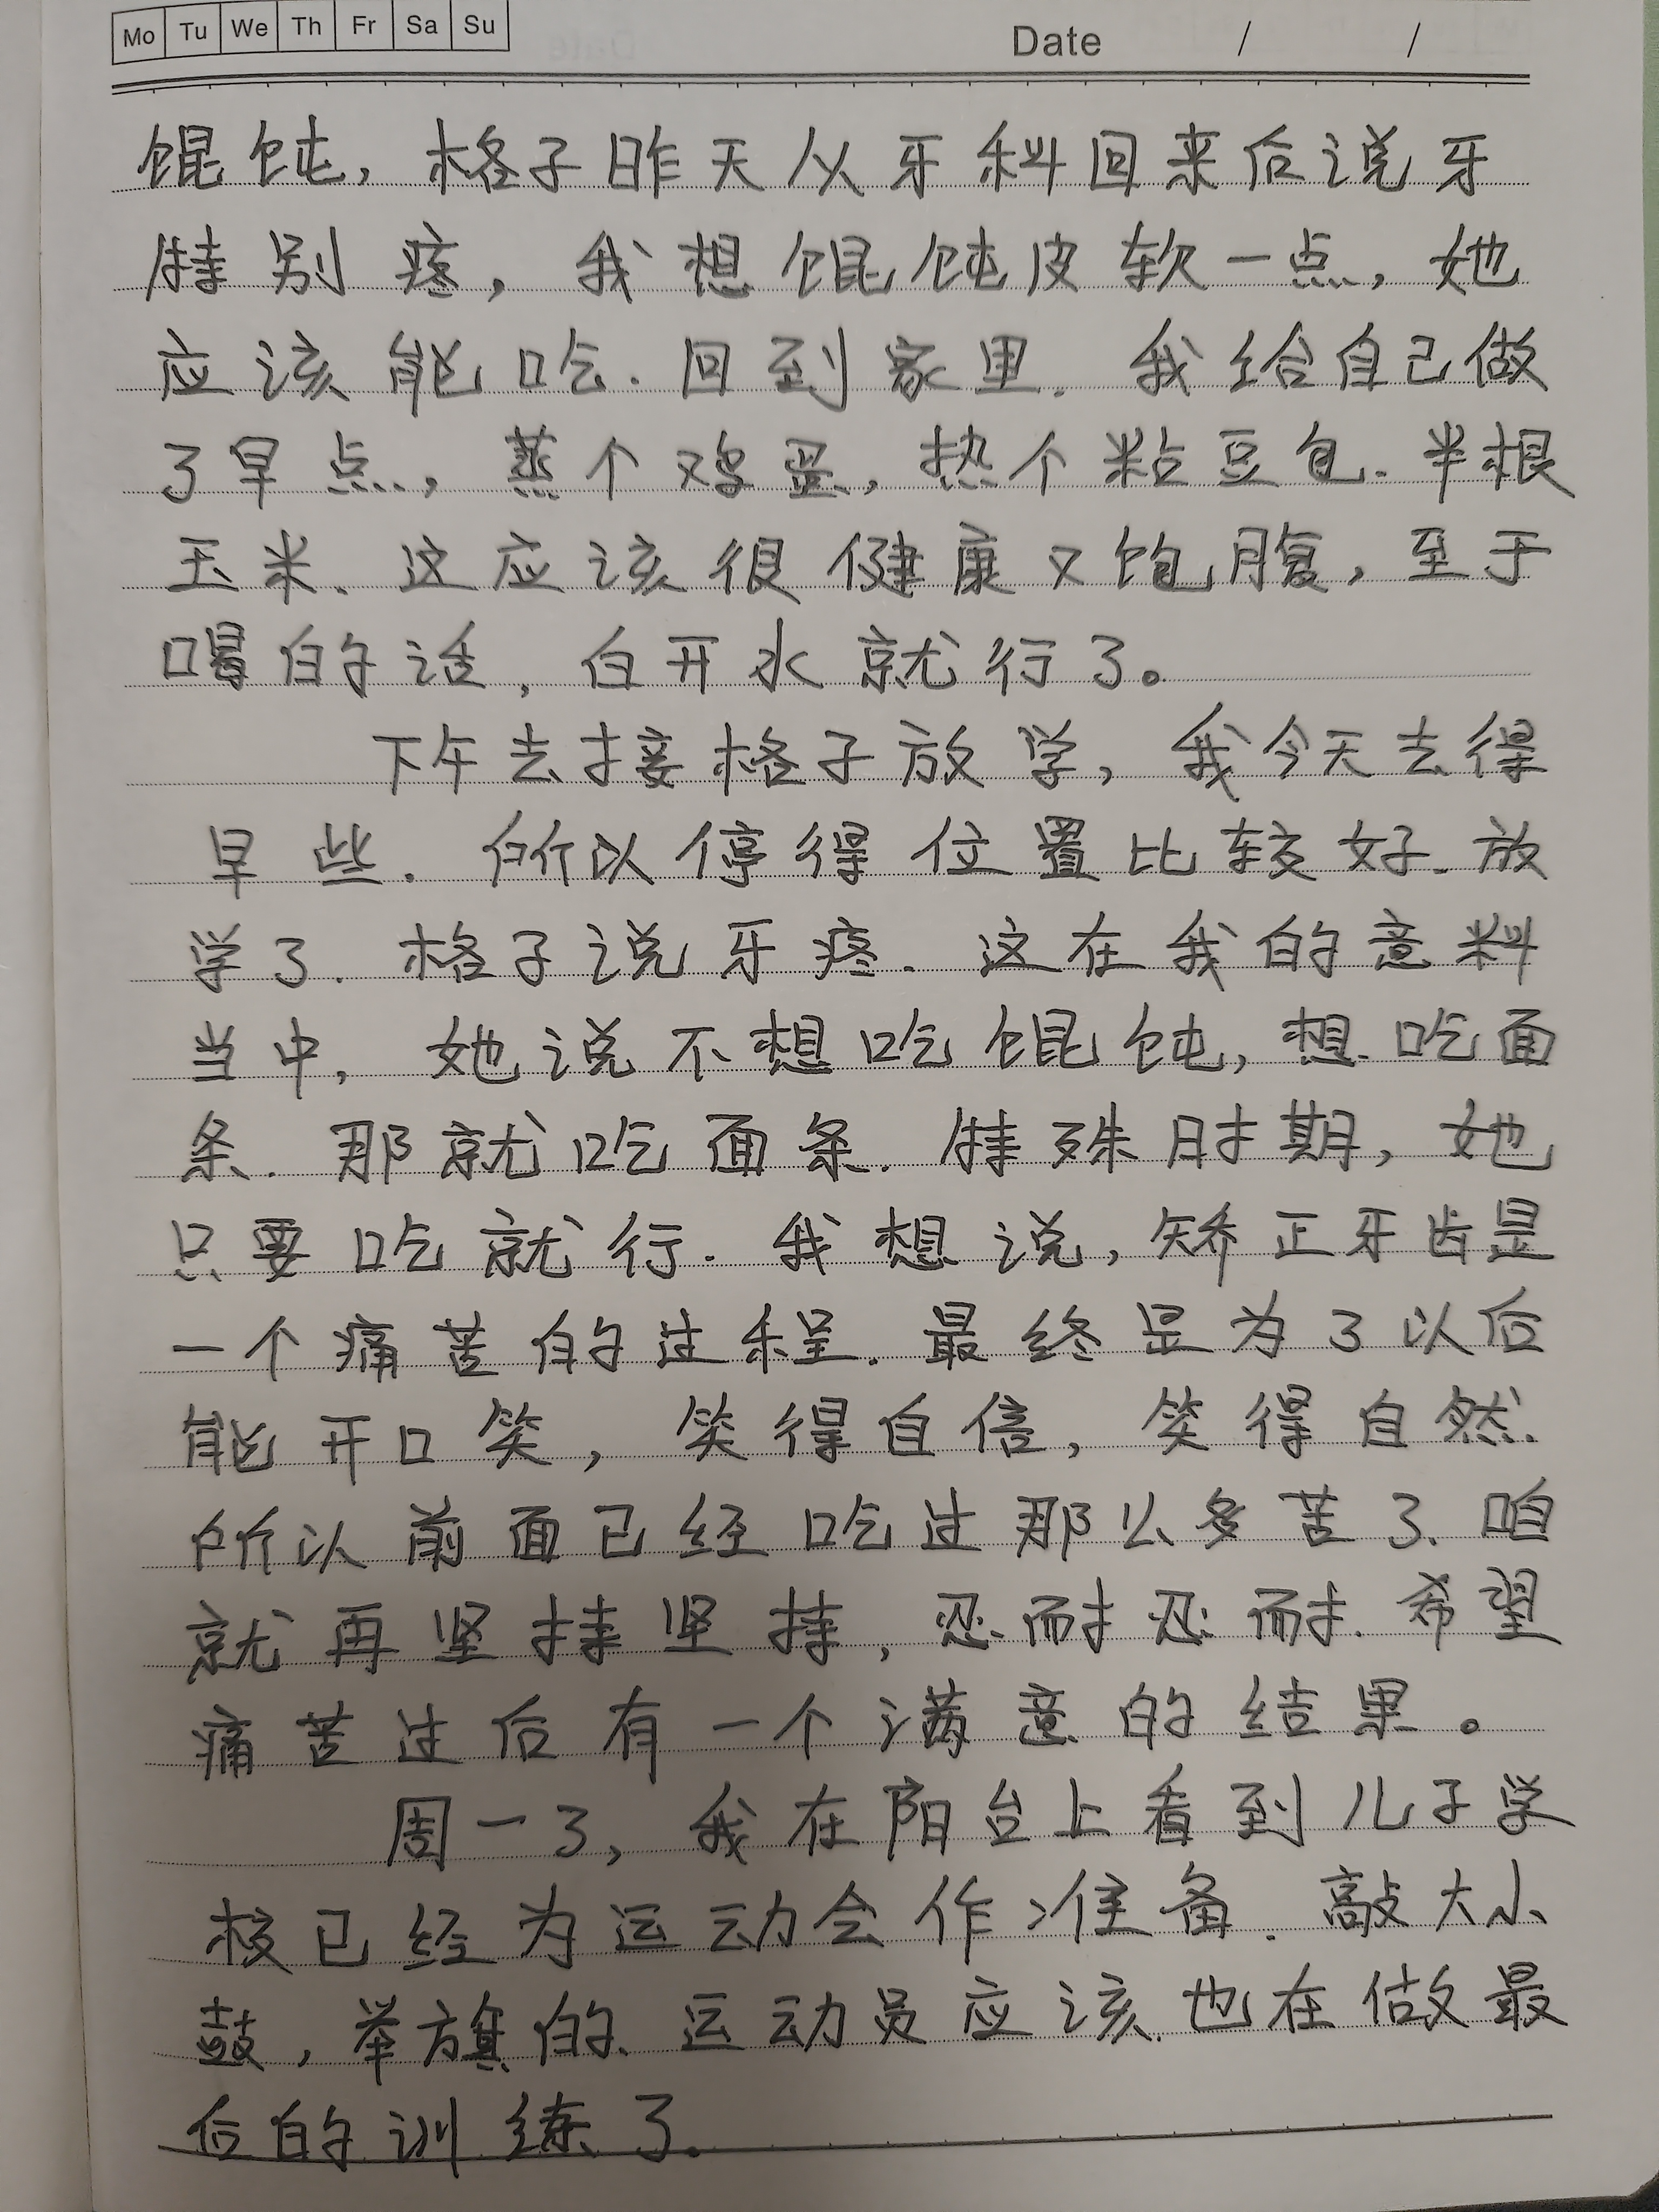 Mo Tu We Th Fr Sa Su Date / /
馄饨，格子昨天从牙科回来后说牙
特别疼，我想馄饨皮软一点，她
应该能吃.回到家里.我给自己做
了早点，蒸个鸡蛋，热个粘豆包.半根
玉米、这应该很健康又饱腹，至于
喝的话，白开水就行了。
下午去接格子放学，我今天去得
早些.所以停得位置比较好.放
学了.格子说牙疼.这在我的意料
当中，她说不想吃馄饨，想吃面
条.那就吃面条.特殊时期，她
只要吃就行.我想说，矫正牙齿是
一个痛苦的过程.最终是为了以后
能开口笑，笑得自信，笑得自然.
所以前面已经吃过那么多苦了、咱
就再坚持坚持，忍耐忍耐.希望
痛苦过后有一个满意的结果。
周一了，我在阳台上看到儿子学
校已经为运动会作准备.敲大小
鼓，举旗的、运动员应该也在做最
后的训练了。